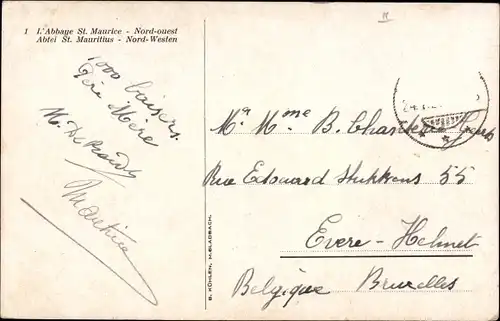 1 L'Abbaye St. Maurice - Nord-ouest
Abtei St. Mauritius - Nord-Westen
1000 baisers
Père Mère
Maurice
B. KÜHLEN, M.GLADBACH.
Mr Mme B.
Rue Edouard Stukkens 55
Evere - Helmet
Belgique Bruxelles